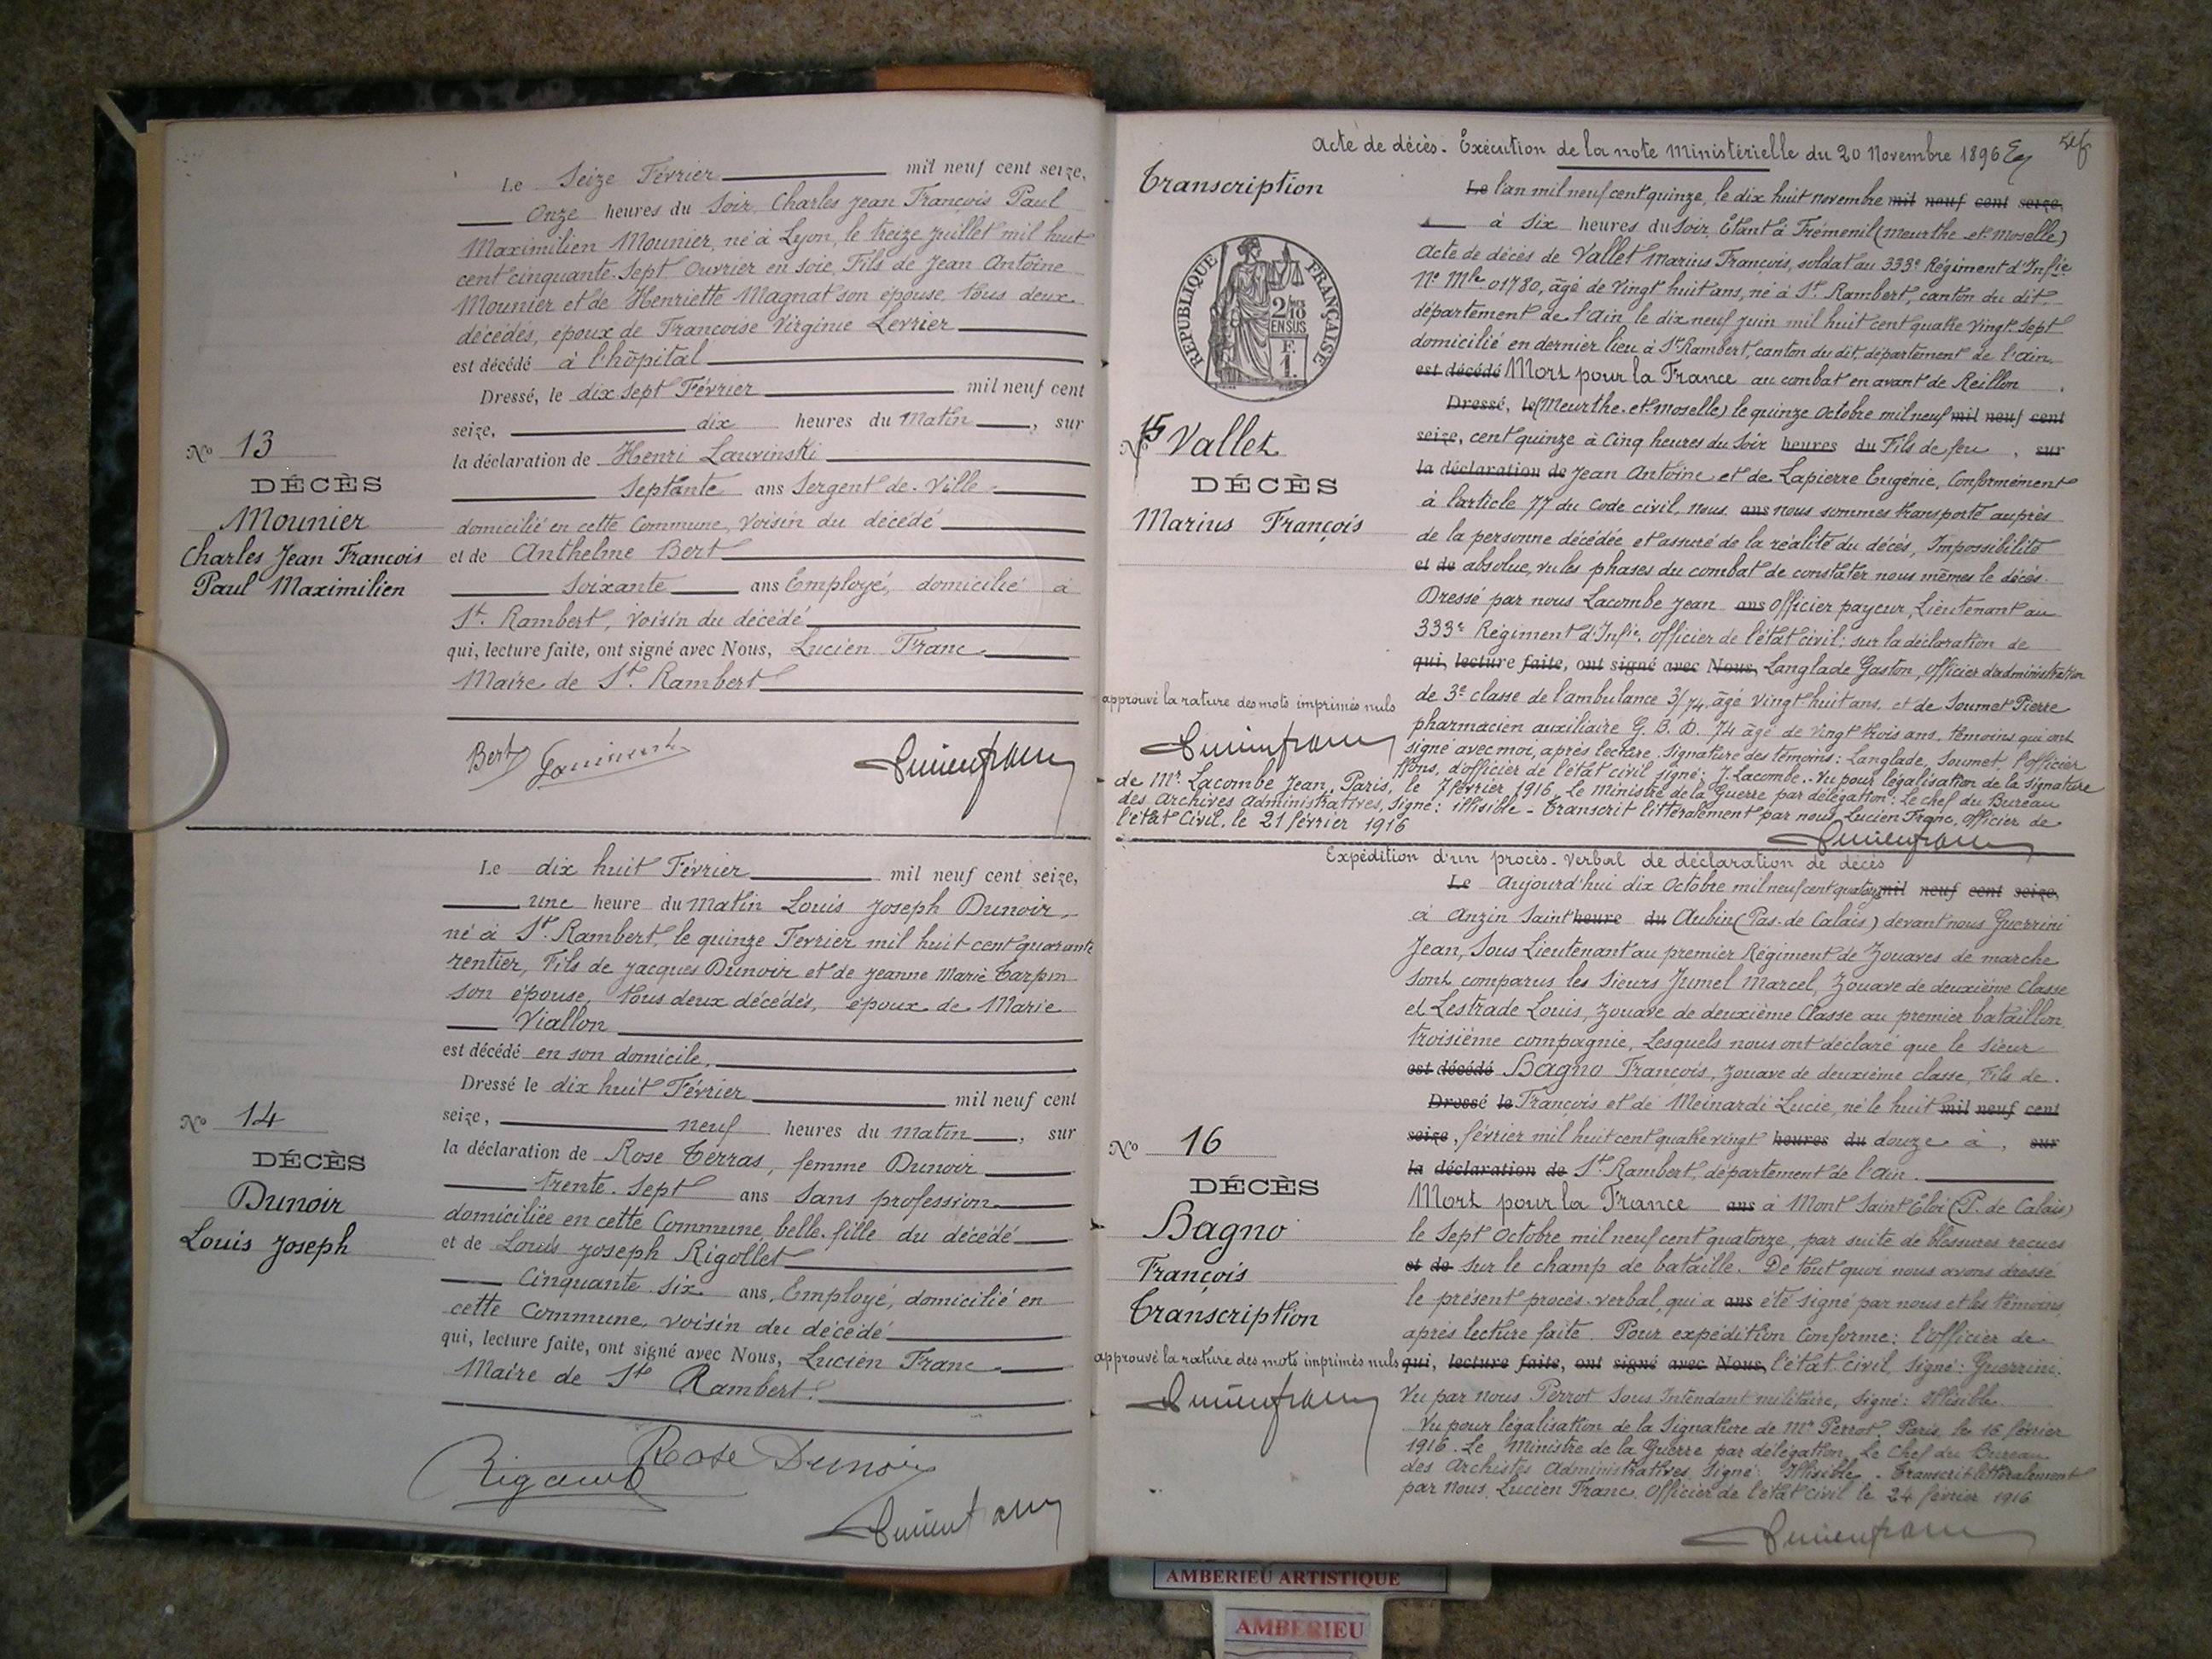 Le Seize Février mil neuf cent seize,
Onze heures du Soir, Charles Jean François Paul
Maximilien Mounier, né à Lyon, le treize juillet mil huit
cent cinquante-Sept Ouvrier en soie, Fils de Jean Antoine
Mounier et de Henriette Magnat son épouse, tous deux
décédés, époux de Françoise Virginie Levrier
est décédé à l'hôpital
Dressé, le dix sept Février mil neuf cent
seize, dix heures du Matin, sur
la déclaration de Henri Lauvinski
Septante ans Sergent de Ville
domicilié en cette Commune, Voisin du décédé
et de Anthelme Bert
Soixante ans Employé, domicilié à
St. Rambert, voisin du décédé
qui, lecture faite, ont signé avec Nous, Lucien Franc
Maire de St. Rambert
Bert
No 13
DÉCÈS
Mounier
Charles Jean François
Paul Maximilien
Le dix huit Février mil neuf cent seize,
une heure du Matin Louis Joseph Dunoir,
né à St. Rambert, le quinze Fevrier mil huit cent quarante
rentier, Fils de Jacques Dunoir et de Jeanne Marie Carpin
son épouse, tous deux décédés, époux de Marie
Viallon
est décédé en son domicile,
Dressé le dix huit Février mil neuf cent
seize, neuf heures du matin, sur
la déclaration de Rose Terras, femme Dunoir
Trente-Sept ans Sans profession
domiciliée en cette Commune, belle-fille du décédé
et de Louis Joseph Rigollet
Cinquante-six ans, Employé, domicilié en
cette Commune, voisin du décédé
qui, lecture faite, ont signé avec Nous, Lucien Franc
Maire de St Rambert.
Rose Dunoir
No 14
DÉCÈS
Dunoir
Louis Joseph
Acte de décès. Exécution de la note Ministérielle du 20 Novembre 1896
Transcription
REPUBLIQUE FRANÇAISE
2/10
EN SUS
F.
1.
No 15 Vallet
DÉCÈS
Marius François
Le l'an mil neuf cent quinze, le dix huit novembre mil neuf cent seize,
à Six heures du Soir, Etant à Frémenil (meurthe et Moselle)
Acte de décès de Vallet Marius François, soldat au 333e Régiment d'Infie
No Mle 01780, âgé de Vingt huit ans, né à St. Rambert, canton du dit,
département de l'Ain le dix neuf juin mil huit cent quatre vingt-sept
domicilié en dernier lieu à St Rambert, canton du dit, département de l'ain
est décédé Mort pour la France au combat en avant de Reillon
Dressé, le (Meurthe-et-moselle) le quinze Octobre mil neuf mil neuf cent
seize, cent quinze à Cinq heures du Soir heures du Fils de feu, sur
la déclaration de Jean Antoine et de Lapierre Eugénie, Conformément
à l'article 77 du Code civil, nous ans nous sommes transporté auprès
de la personne décédée et assuré de la réalité du décès, Impossibilité
et de absolue, vu les phases du combat de constater nous mêmes le décès.
Dressé par nous Lacombe Jean ans Officier payeur, Lieutenant au
333e Régiment d'Infie. Officier de l'état civil; sur la déclaration de
qui, lecture faite, ont signé avec Nous, Langlade Gaston, Officier d'administration
de 3e classe de l'ambulance 3/74 âgé Vingt-huit ans, et de Soumet Pierre
pharmacien auxiliaire G. B. D. 74 âgé de Vingt trois ans, témoins qui ont
signé avec moi, après lecture. Signature des témoins: Langlade, Soumet, l'officier
ffons, d'officier de l'état civil signé: J. Lacombe.- Vu pour légalisation de la signature
de Mr. Lacombe Jean, Paris, le 7 février 1916, Le Ministre de la Guerre par délégation: Le chef du Bureau
des Archives Administratives, Signé: illisible - Transcrit littéralement par nous, Lucien Franc, Officier de
l'état Civil, le 21 février 1916
approuvé la rature des mots imprimés nuls
Expédition d'un procès-Verbal de déclaration de décès
Le Aujourd'hui dix Octobre mil neuf cent quatorze mil neuf cent seize,
à Anzin Saint heure du Aubin (Pas-de Calais) devant nous Guerrini
Jean, Sous Lieutenant au premier Régiment de Zouaves de marche
Sont comparus les Sieurs Jumel Marcel, Zouave de deuxième Classe
et Lestrade Louis, Zouave de deuxième Classe au premier bataillon
troisième compagnie, Lesquels nous ont déclaré que le Sieur
est décédé Bagno François, Zouave de deuxième classe, Fils de
Dressé le François et de Meinardi Lucie, né le huit mil neuf cent
seize, février mil huit cent quatre vingt heures du douze à, sur
la déclaration de St. Rambert, département de l'Ain.
Mort pour la France ans à Mont Saint Eloi (P. de Calais)
le Sept Octobre mil neuf cent quatorze, par suite de blessures reçues
et de sur le champ de bataille. De tout quoi nous avons dressé
le présent procès-verbal, qui a ans été signé par nous et les témoins,
après lecture faite. Pour expédition Conforme: l'Officier de
qui, lecture faite, ont signé avec Nous, l'état Civil, Signé: Guerrini.
Vu par nous Perrot Sous Intendant militaire, Signé: Illisible.
Vu pour légalisation de la Signature de Mr Perrot. Paris, le 16 février
1916. Le Ministre de la Guerre par délégation, Le Chef du Bureau
des Archives Administratives, Signé: Illisible. - Transcrit littéralement
par Nous, Lucien Franc, Officier de l'état Civil le 24 février 1916
No 16
DÉCÈS
Bagno
François
Transcription
approuvé la rature des mots imprimés nuls
AMBERIEU ARTISTIQUE
AMBERIEU